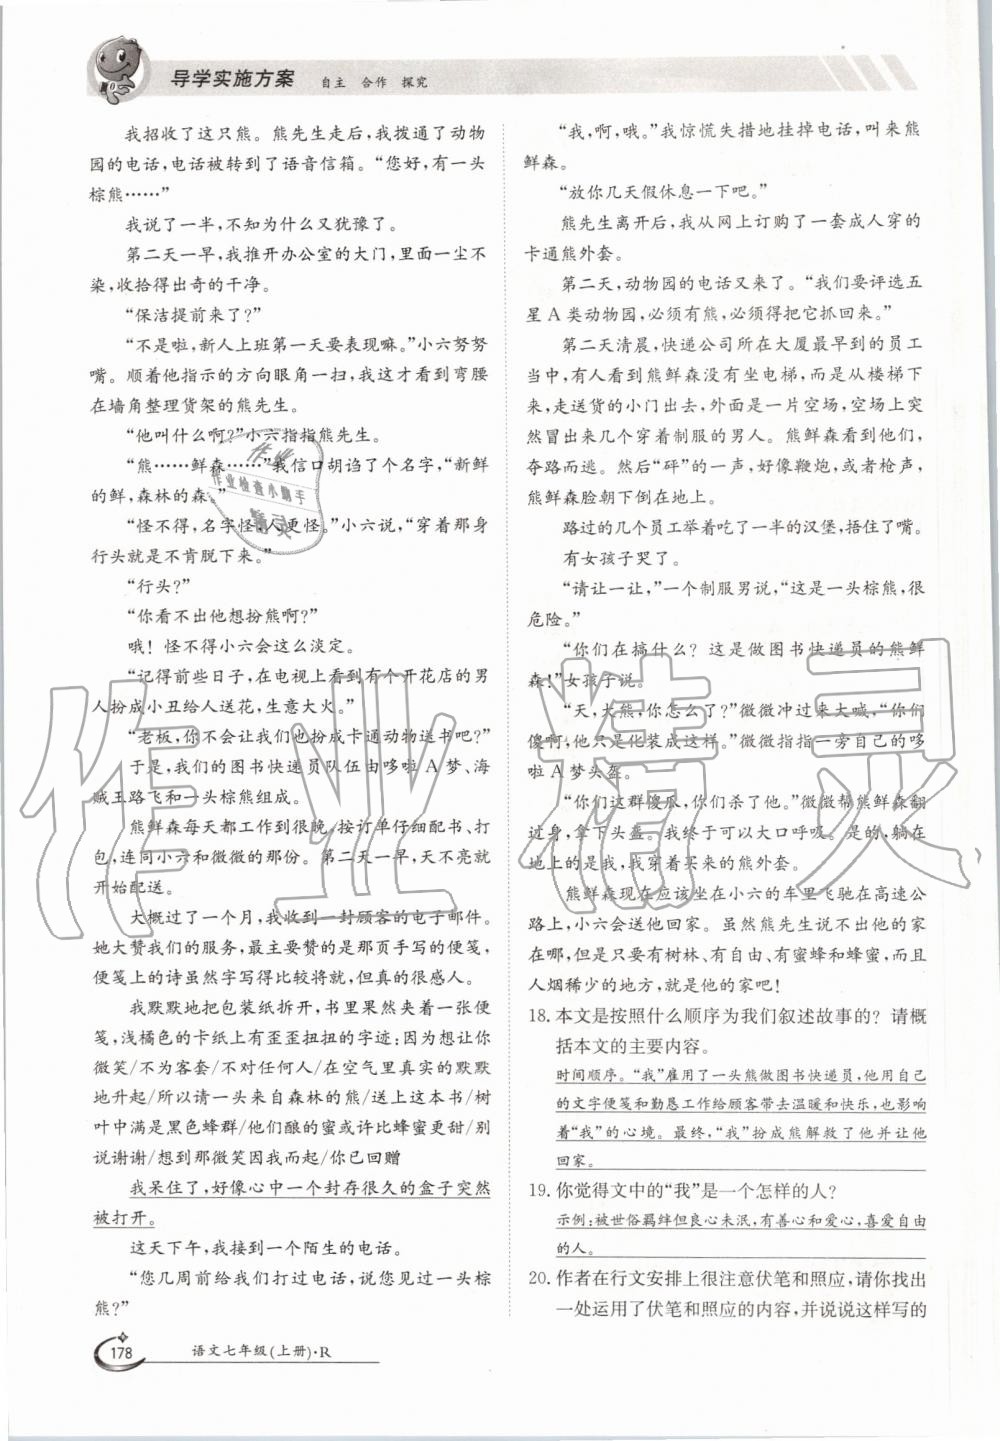 导学实施方案 自主 合作 探究
我招收了这只熊。熊先生走后,我拨通了动物
园的电话,电话被转到了语音信箱。“您好,有一头
棕熊……”
我说了一半,不知为什么又犹豫了。
第二天一早,我推开办公室的大门,里面一尘不
染,收拾得出奇的干净。
“保洁提前来了?”
“不是啦,新人上班第一天要表现嘛。”小六努努
嘴。顺着他指示的方向眼角一扫,我这才看到弯腰
在墙角整理货架的熊先生。
“他叫什么啊?”小六指指熊先生。
“熊……鲜森……”我信口胡诌了个名字,“新鲜
的鲜,森林的森。”
“怪不得,名字怪,人更怪。”小六说,“穿着那身
行头就是不肯脱下来。”
“行头?”
“你看不出他想扮熊啊?”
哦!怪不得小六会这么淡定。
“记得前些日子,在电视上看到有个开花店的男
人扮成小丑给人送花,生意大火。”
“老板,你不会让我们也扮成卡通动物送书吧?”
于是,我们的图书快递员队伍由哆啦A梦、海
贼王路飞和一头棕熊组成。
熊鲜森每天都工作到很晚,按订单仔细配书、打
包,连同小六和微微的那份。第二天一早,天不亮就
开始配送。
大概过了一个月,我收到一封顾客的电子邮件。
她大赞我们的服务,最主要赞的是那页手写的便笺,
便笺上的诗虽然字写得比较将就,但真的很感人。
我默默地把包装纸拆开,书里果然夹着一张便
笺,浅橘色的卡纸上有歪歪扭扭的字迹:因为你的
微笑/不为客套/不对任何人/在空气里真实的默默
地升起/所以请一头来自森林的熊/送上这本书/树
叶中当然是黑色蜂群/他们酿的蜜或许比蜂蜜更甜/别
说谢谢/想到那微笑因我而起/你已回赠
我呆住了,好像心中一个封存很久的盒子突然
被打开。
这天下午,我接到一个陌生的电话。
“您几周前给我们打过电话,说您见到一头棕
熊?”
“我,啊,哦。”我惊慌失措地挂掉电话,叫来熊
鲜森。
“放你几天假休息一下吧。”
熊先生离开后,我从网上订购了一套成人穿的
卡通熊外套。
第二天,动物园的电话又来了。“我们要评选五
星A类动物园,必须有熊,必须得把它抓回来。”
第二天清晨,快递公司所在大厦最早到的员工
当中,有人看到熊鲜森没有坐电梯,而是从楼梯下
来,走送货的小门出去,外面是一片空场,空场上突
然冒出来几个穿着制服的男人。熊鲜森看到他们,
夺路而逃。然后“砰”的一声,好像鞭炮,或者枪声,
熊鲜森脸朝下倒在地上。
路过的几个员工举着吃了一半的汉堡,捂住了嘴。
有女孩子哭了。
“请让一让,”一个制服男说,“这是一头棕熊,很
危险。”
“你们在搞什么?这是做图书快递员的熊鲜
森!”女孩子说。
“天,大熊,你怎么了?”微微冲过来大喊,“你们
傻啊,他只是化装成这样。”微微指指一旁自己的哆
啦A梦头盔。
“你们这群傻瓜,你们杀了他。”微微帮熊鲜森翻
过身,拿下头盔。我终于可以大口呼吸。是的,躺在
地上的是我,我穿着买来的熊外套。
熊鲜森现在应该坐在小六的车里飞驰在高速公
路上,小六会送他回家。虽然熊先生说不出他的家
在哪,但是只要有树林、有自由、有蜜蜂和蜂蜜,而且
人烟稀少的地方,就是他的家吧!
18. 本文是按照什么顺序为我们叙述故事的?请概
括本文的主要内容。
时间顺序。“我”雇用了一头熊做图书快递员,他用自己
的文字便笺和勤恳工作给顾客带去温暖和快乐,也影响
着“我”的心境。最终,“我”扮成熊解救了他并让他
回家。
19. 你觉得文中的“我”是一个怎样的人?
示例:被世俗羁绊但良心未泯,有善心和爱心,喜爱自由
的人。
20. 作者在行文安排上很注意伏笔和照应,请你找出
一处运用了伏笔和照应的内容,并说说这样写的
178 语文七年级(上册)·R
作业精灵
作业
作业检查小助手
精灵